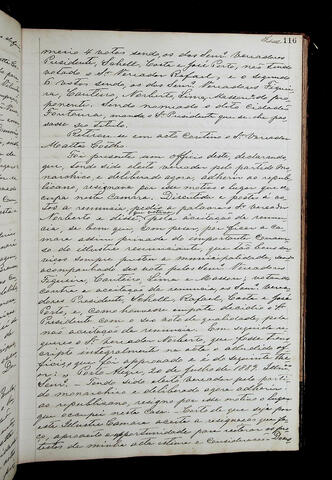 116
meiro 4 votos sendo os dos Senrs. Vereadores
Presidente, Schell, Costa e José Porto, não tendo
votado o Sr. Vereador Rafael, e o segundo
6 votos sendo os dos Senrs. Vereadores Figuei-
ra, Canteiro, Norberto, Lima, e o
ponente. Sendo nomeado o dito Cidadão
Fontoura, manda o Sr. Presidente que se lhe pas-
sasse o titulo.
Retirou-se em acto Continuo o Sr. Vereador
Mattos Coelho
Foi presente um officio deste, declarando
que, tendo sido eleito vereador pelo partido Mo-
narchico, e deliberado agora, adherir ao repu-
blicano, resignava por esse motivo o lugar que oc-
cupa nesta Camara. Discutido e posto a vo-
tos a renuncia pedio a palavra o Vereador
Norberto e disse que votava pela aceitação da renun-
cia, se bem que, Com pesar, por ficar a Ca-
mara privada do importante Concur-
so do illustre renunciante, que tão bons ser-
viços sempre prestou a municipalidade, sendo
acompanhado seu voto pelos Senrs. Vereadores
Figueira, Canteiro, Lima e votando
contra a aceitação da renuncia, os Senrs. Verea-
dores Presidente, Schell, Rafael, Costa e José
Porto, e, como houvesse empate decidio o Sr.
Presidente com o seu voto de qualidade, pela
não aceitação da renuncia. Em seguida re-
quereu o Sr. Vereador Norberto, que fosse trans-
cripto integralmente na acta o alludido of-
ficio, que foi approvado e é do seguinte theor:
Porto Alegre, 20 de Julho de 1889. Illmos.
Senrs. - Tendo sido eleito Vereador pelo parti-
do monarchico e deliberado agora adherir
ao republicano, resigno por esse motivo o lugar
que occupei nesta Casa. - Certo de que seja por
esta Illustre Camara aceita a resignação que fa-
ço, aproveito a opportunidade para reiterar os pro-
testos de minha alta estima e Consideração. Deus